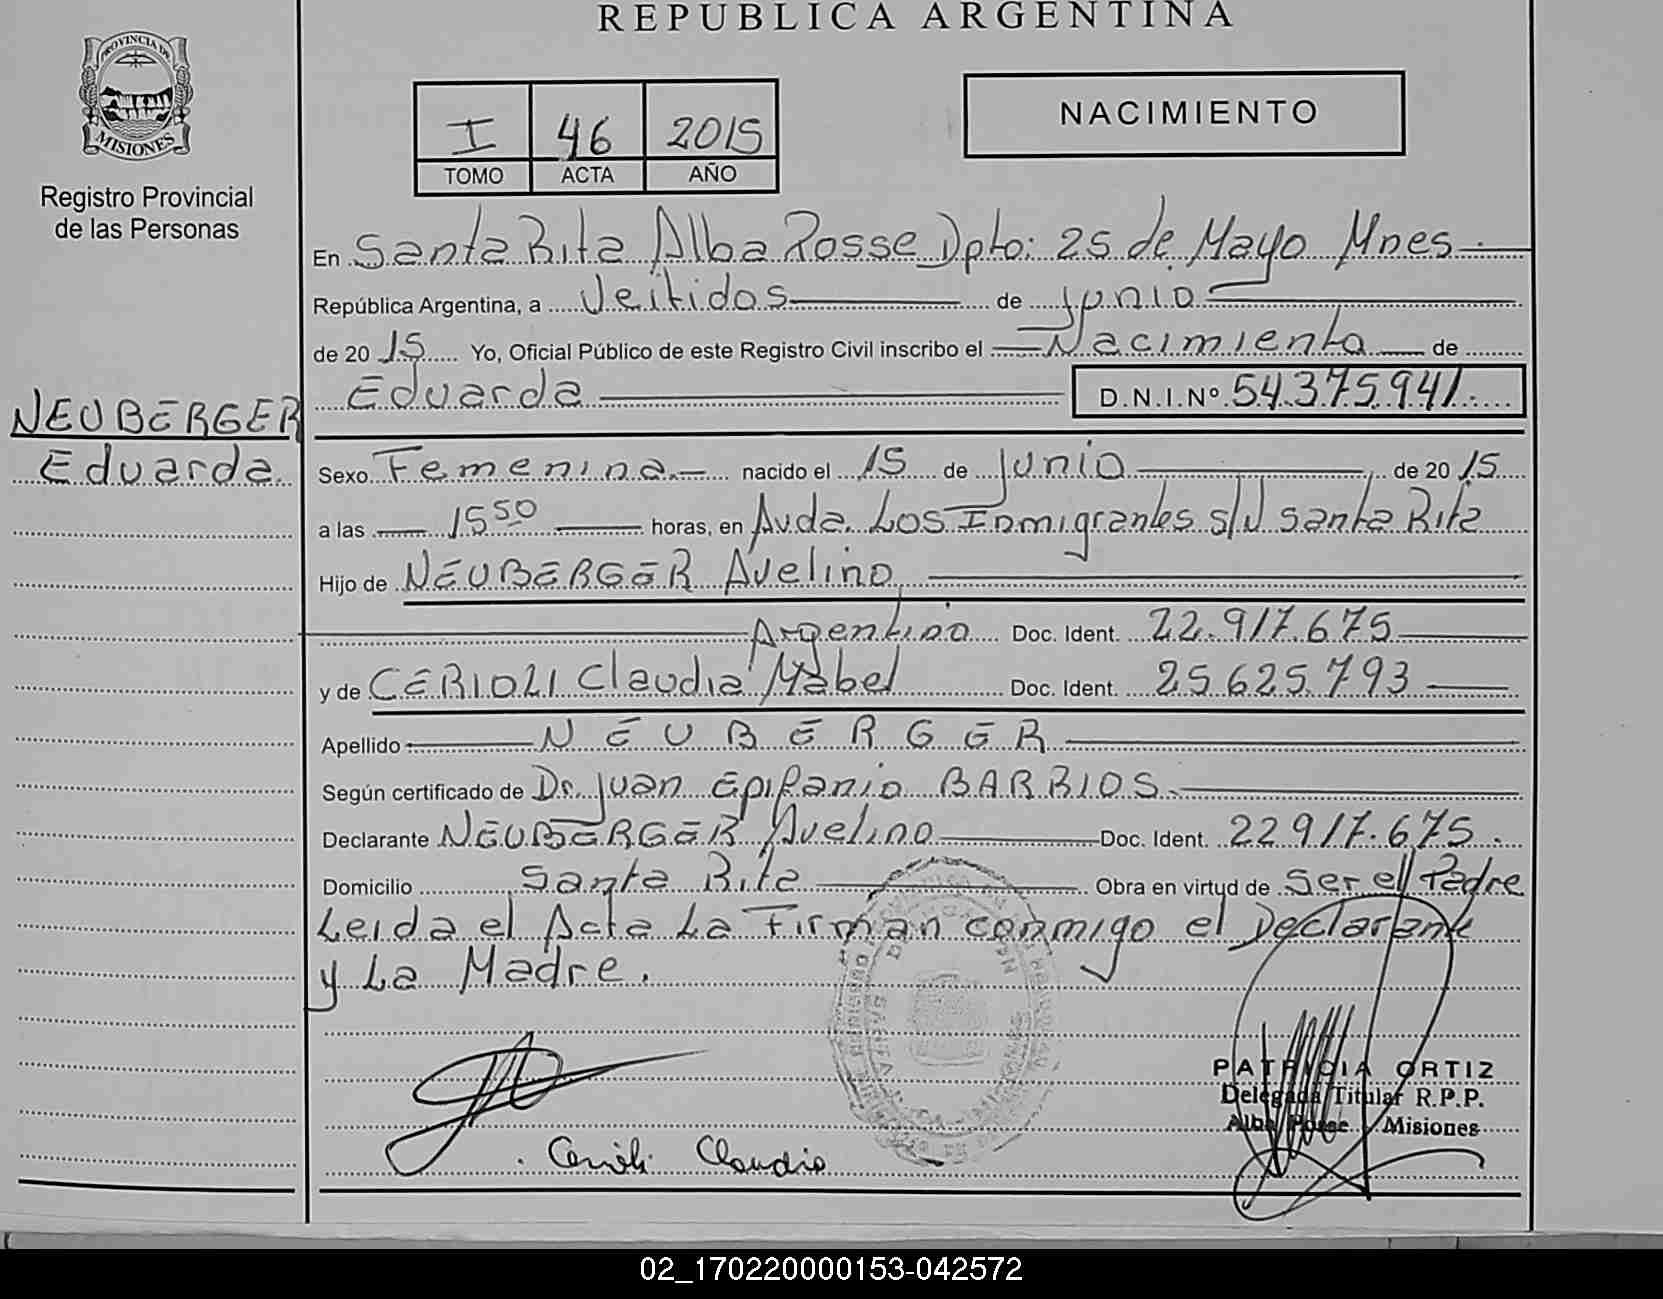 REPUBLICA ARGENTINA
PROVINCIA DE
MISIONES
Registro Provincial
de las Personas
I 46 2015
TOMO ACTA AÑO
NACIMIENTO
En Santa Rita Alba Posse Dpto: 25 de Mayo Mnes
República Argentina, a Veitidos de junio
de 2015 Yo, Oficial Público de este Registro Civil inscribo el Nacimiento de
Eduarda D.N.I.Nº 54.375.941
NEUBERGER
Eduarda
Sexo Femenina nacido el 15 de junio de 2015
a las 15 50 horas, en Avda. Los Inmigrantes s/N Santa Rita
Hijo de NEUBERGER Avelino
Argentino Doc. Ident. 22.917.675
y de CERIOLI Claudia Mabel Doc. Ident. 25.625.793
Apellido NEUBERGER
Según certificado de Dr. Juan Epifanio BARRIOS
Declarante NEUBERGER Avelino Doc. Ident. 22917.675
Domicilio Santa Rita Obra en virtud de Ser el Padre
Leida el Acta La Firman conmigo el Declarante
y La Madre.
PATRICIA ORTIZ
Delegada Titular R.P.P.
Alba Posse Misiones
Cerioli Claudia
02_170220000153-042572